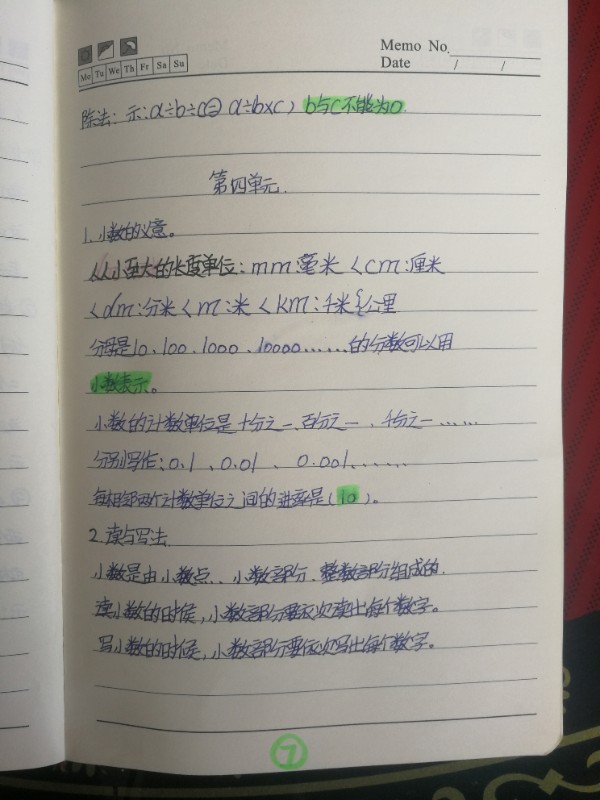 Memo No.
Mo Tu We Th Fr Sa Su
Date / /
除法:示:a÷b÷c=a÷b×c) b与c不能为0
第四单元.
1.小数的意。
从小至大的长度单位:mm:毫米<cm:厘米
<dm:分米<m:米<km:千米{公里
分母是10、100、1000、10000……的分数可以用
小数表示。
小数的计数单位是十分之一、百分之一、千分之一……
分别写作:0.1、0.01、0.001……
每相邻两个计数单位之间的进率是(10)。
2.读与写法
小数是由小数点、小数部分、整数部分组成的.
读小数的时候,小数部分要依次读出每个数字。
写小数的时候,小数部分要依次写出每个数字。
7